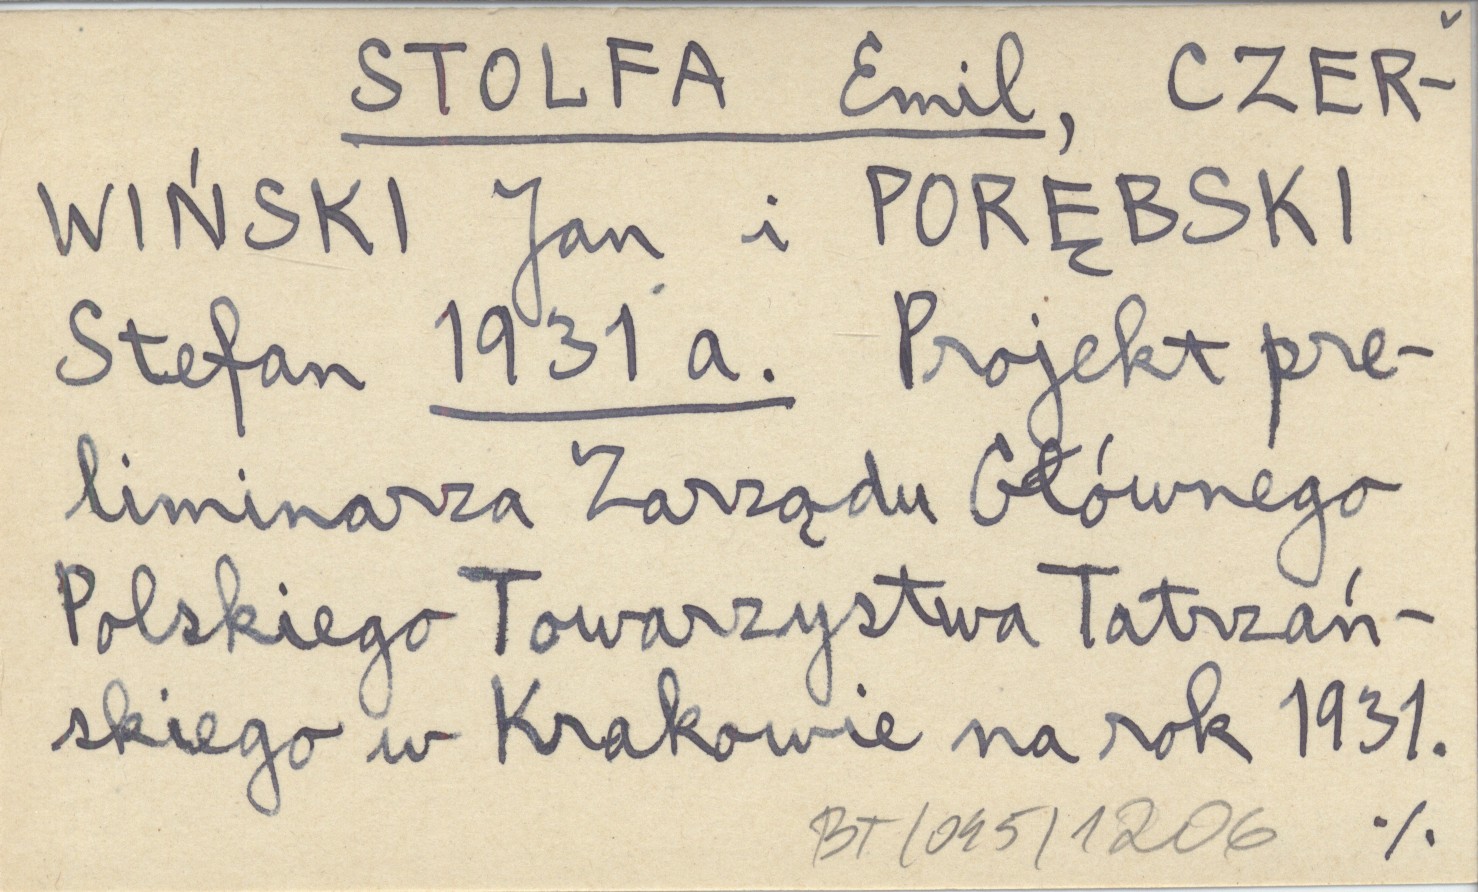 STOLFA Emil, CZER-
WIŃSKI Jan i PORĘBSKI
Stefan 1931 a. Projekt pre-
liminarza Zarządu Głównego
Polskiego Towarzystwa Tatrzań-
skiego w Krakowie na rok 1931.
BT/045/1206 ./.